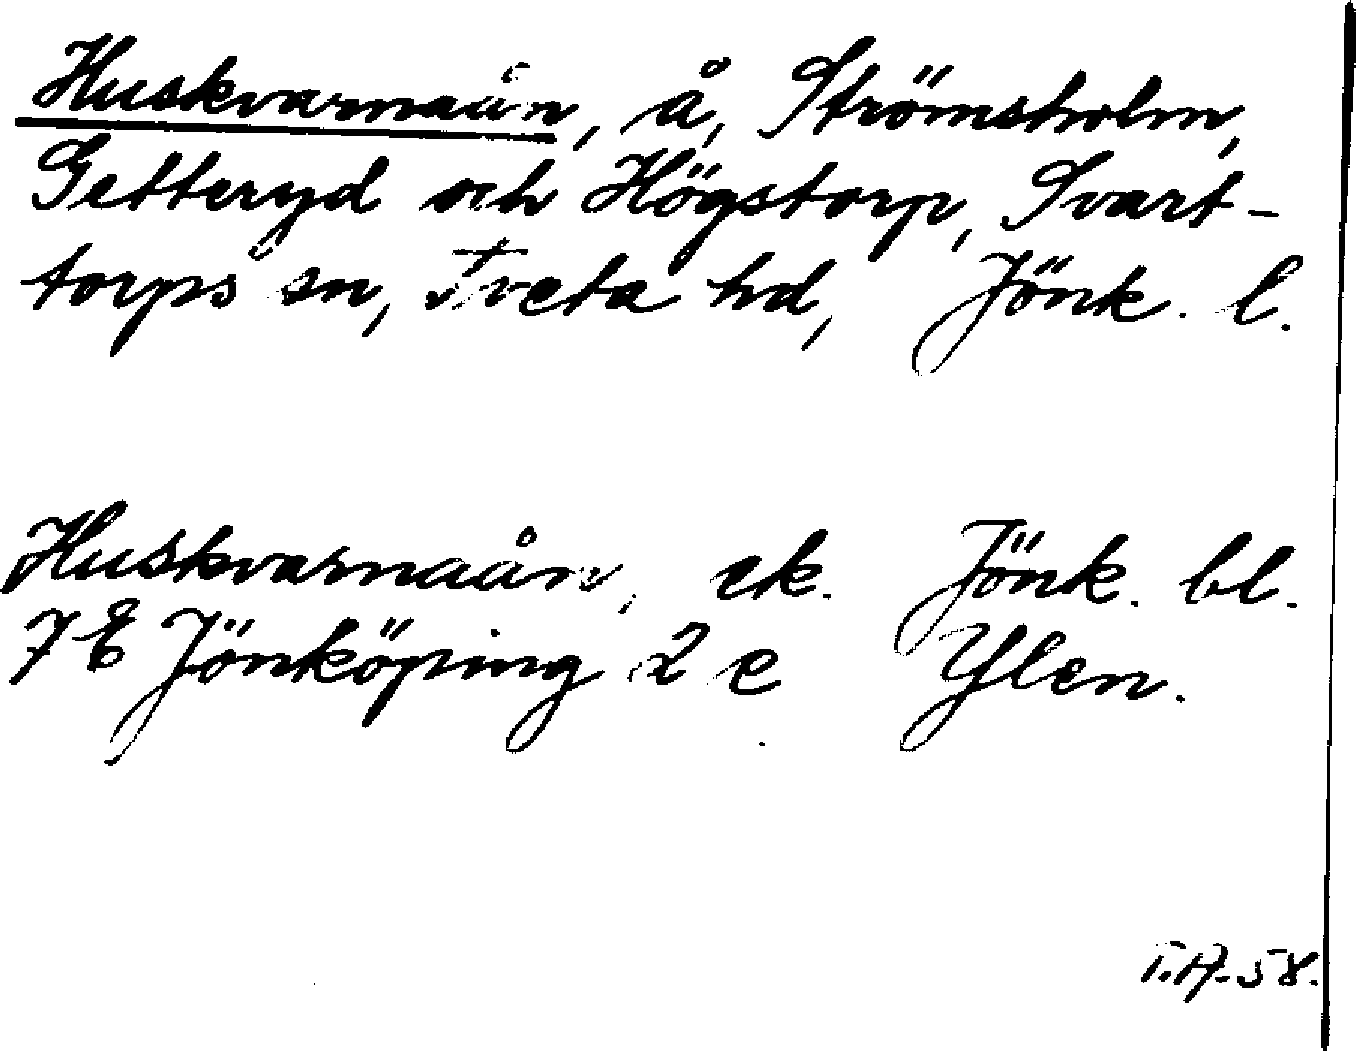 Huskvarnaån, å, Strömsholm,
Getteryd och Högstorp, Svart-
torps sn, Tveta hd, Jönk. l.
Huskvarnaån, ek. Jönk. bl.
7 E Jönköping 2 e Ylen.
T.A. 58.